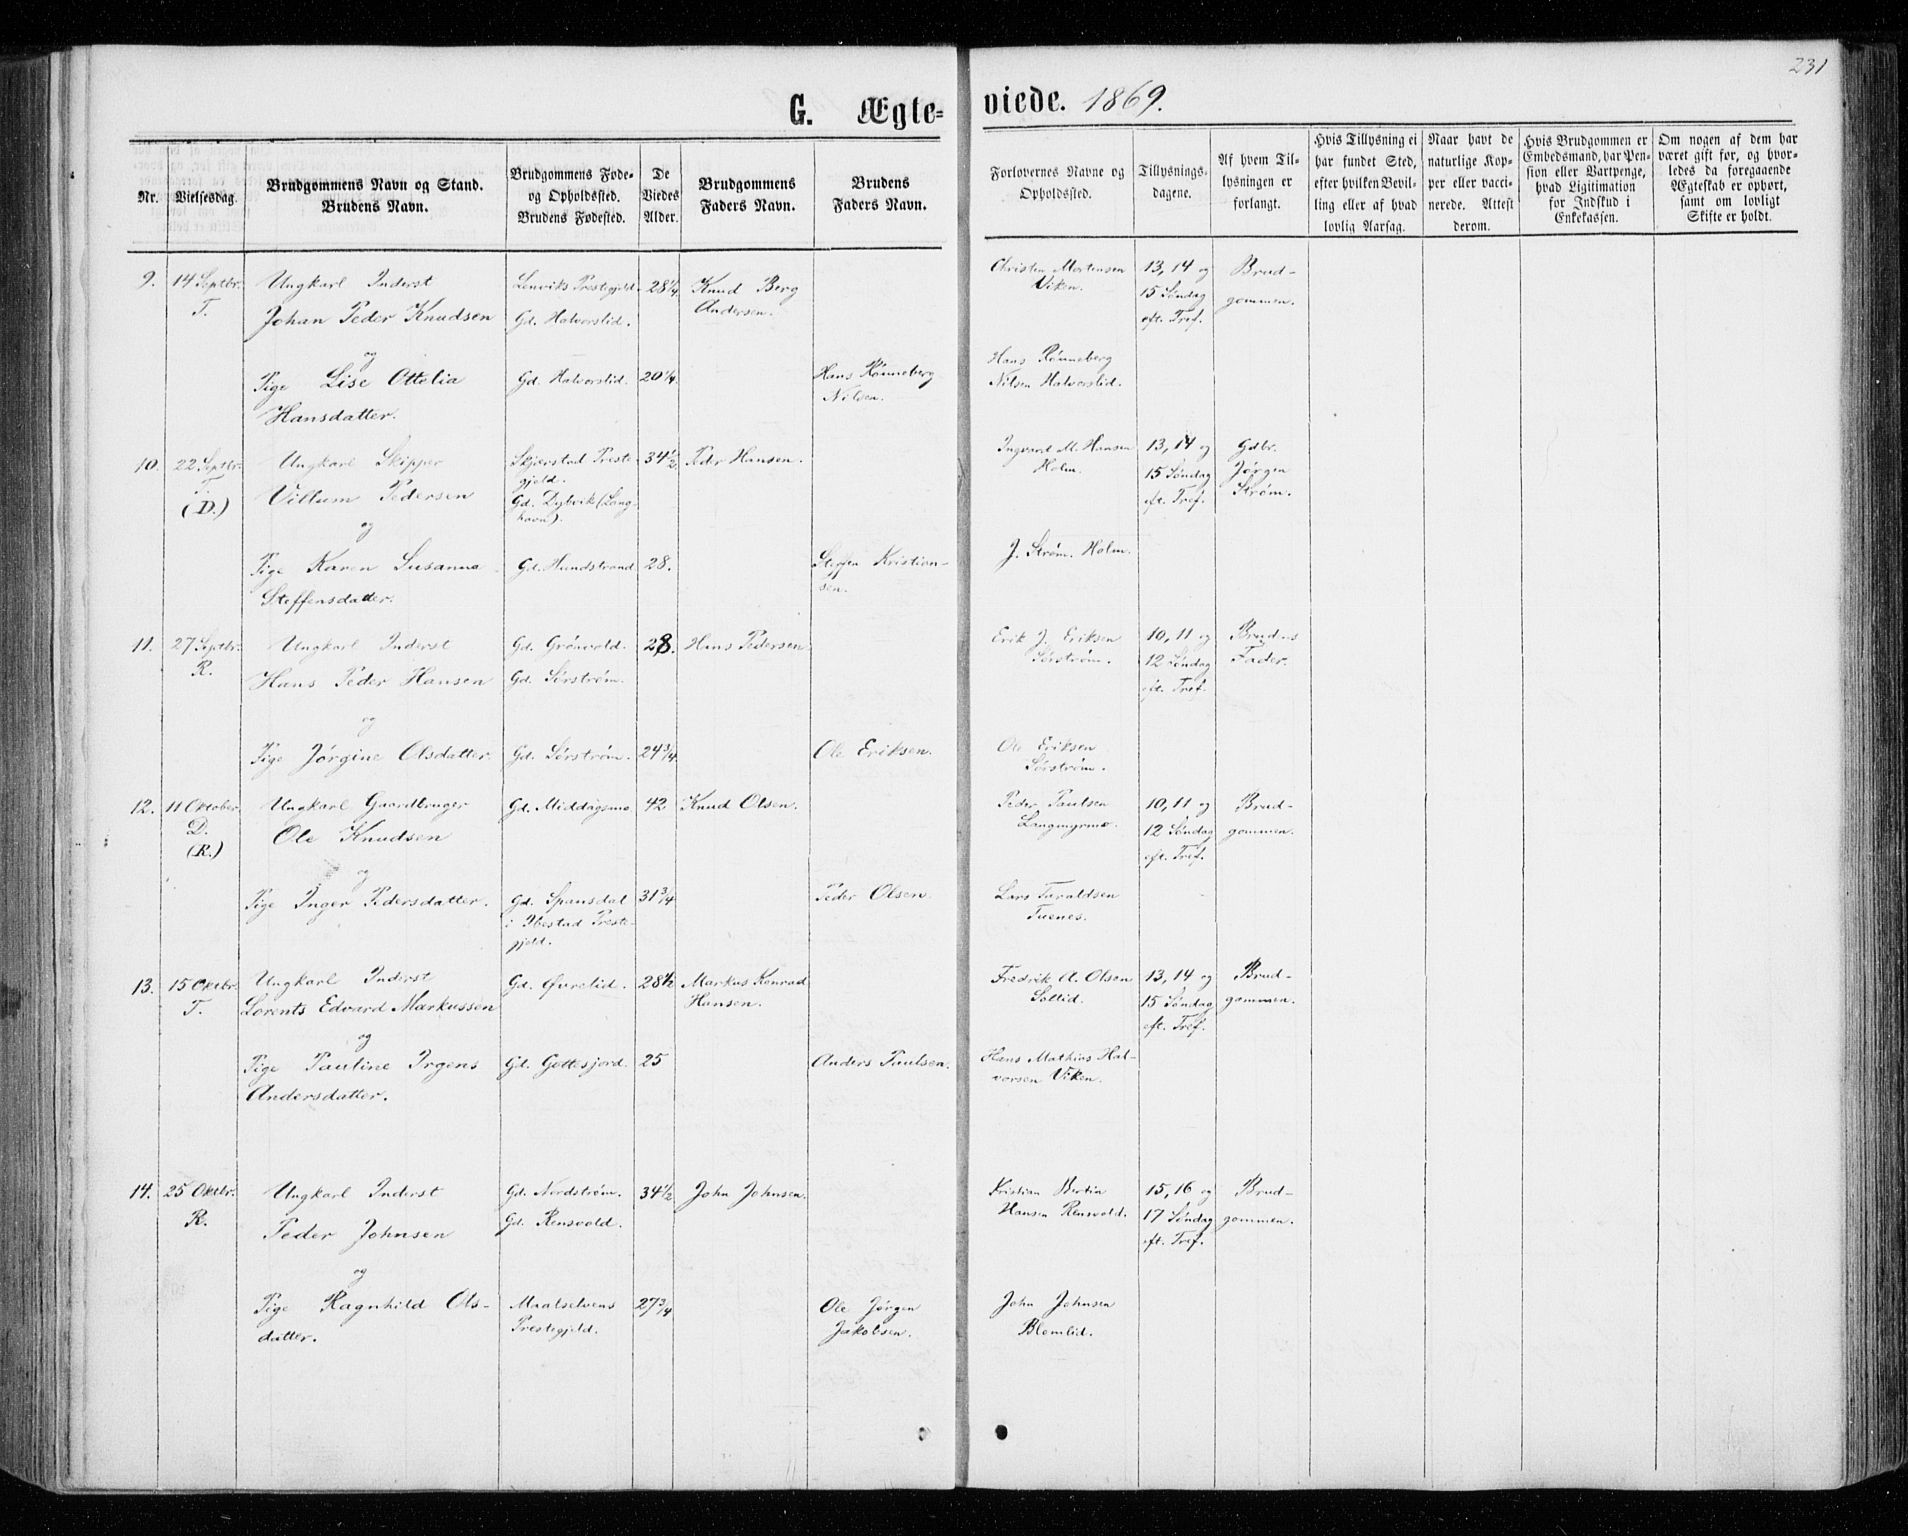 231
G. Ægte=
viede. 1869.
Nr.
Vielsesdag.
Brudgommens Navn og Stand.
Brudens Navn.
Brudgommens Føde-
og Opholdssted.
Brudens Fødested.
De
Viedes
Alder.
Brudgommens
Faders Navn.
Brudens
Faders Navn.
Forlovernes Navne og
Opholdssted.
Tillysnings-
dagene.
Af hvem Til-
lysningen er
forlangt.
Hvis Tillysning ei
har fundet Sted,
efter hvilken Bevil-
ling eller af hvad
lovlig Aarsag.
Naar havt de
naturlige Kop-
per eller vacci-
nerede. Attest
derom.
Hvis Brudgommen er
Embedsmand, har Pen-
sion eller Vartpenge,
hvad Ligitimation
for Indskud i
Enkekassen.
Om nogen af dem har
været gift før, og hvor-
ledes da foregaaende
Ægteskab er ophørt,
samt om lovligt
Skifte er holdt.
9.
14 Septbr.
T.
Ungkarl Inderst
Johan Peder Knudsen
og
Pige Lise Ottelia
Hansdatter.
Lenviks Prestegjeld.
Gd. Halvorslid.
Gd. Halvorslid.
28 1/4
20 1/4
Knud Berg
Andersen.
Hans Rønneberg
Nilsen.
Christen Mortensen
Viken.
Hans Rønneberg
Nilsen Halvorslid.
13, 14 og
15 Søndag
eft. Tref.
Brud-
gommen.
10.
22 Septbr.
T.
(D.)
Ungkarl Skipper
Villum Pedersen
og
Pige Karen Susanna
Steffensdatter.
Skjerstad Preste-
gjeld.
Gd. Dybvik (Lang-
havn).
Gd. Hundstrand
34 1/2
28.
Peder Hansen.
Steffen Kristian-
sen.
Ingvart M. Hansen
Holm.
J. Strøm. Holm.
13, 14 og
15 Søndag
eft. Tref.
Gdbr.
Jørgen
Strøm.
11.
27 Septbr.
R.
Ungkarl Inderst
Hans Peder Hansen
og
Pige Jørgine Olsdatter.
Gd. Grønvold.
Gd. Sørstrøm.
Gd. Sørstrøm.
28.
24 3/4
Hans Pedersen
Ole Eriksen.
Erik J. Eriksen
Sørstrøm.
Ole Eriksen
Sørstrøm.
10, 11 og
12 Søndag
eft. Tref.
Brudens
Fader.
12.
11 Oktober.
D.
(R.)
Ungkarl Gaardbruger
Ole Knudsen
og
Pige Inger Pedersdatter.
Gd. Middagsmo
Gd. Spansdal
i Ibestad Preste-
gjeld.
42
31 3/4
Knud Olsen.
Peder Olsen.
Peder Paulsen
Langmyrmo.
Lars Taraldsen
Tuenes.
10, 11 og
12 Søndag
eft. Tref.
Brud-
gommen.
13.
15 Oktbr.
T.
Ungkarl Inderst
Lorents Edvard Markussen
og
Pige Pauline Irgens
Andersdatter.
Gd. Øvrelid.
Gd. Gottesjord.
28 1/2
25
Markus Konrad
Hansen.
Anders Paulsen.
Fredrik A. Olsen
Sollid.
Hans Mathias Hal-
vorsen Viken.
13, 14 og
15 Søndag
eft. Tref.
Brud-
gommen.
14.
25 Oktbr.
R.
Ungkarl Inderst
Peder Johnsen
og
Pige Ragnhild Ols-
datter.
Gd. Nordstrøm.
Gd. Rensvold.
Maalselvens
Prestegjeld.
34 1/2
27 3/4
John Johnsen.
Ole Jørgen
Jakobsen.
Kristian Bertin
Hansen Rensvold.
John Johnsen
Blomlid.
15, 16 og
17 Søndag
eft. Tref.
Brud-
gommen.